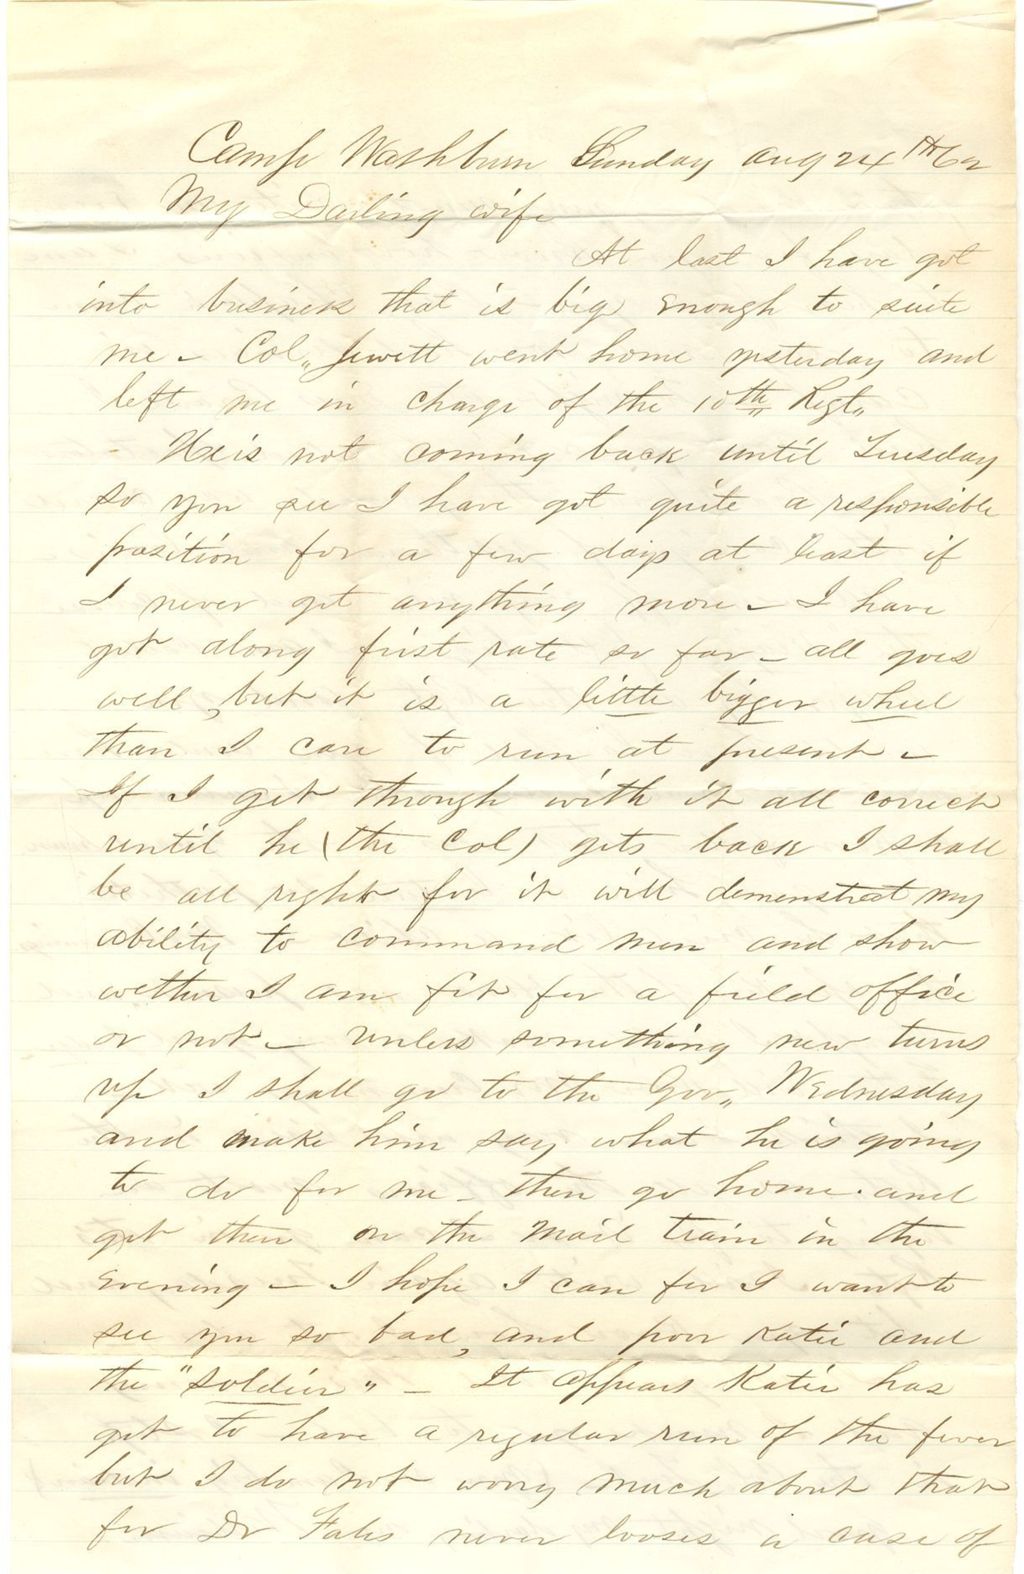 Camp Washburn Sunday Aug 24th 62
My Darling wife
At last I have got
into business that is big enough to suite
me - Col,, Jewett went home ysterday and
left me in charge of the 10th Regt,,
He is not coming back until Tuesday
so you see I have got quite a responsible
position for a few days at least if
I never get anything more - I have
got along first rate so far - all goes
well, but it is a little bigger wheel
than I care to run at present -
If I get through with it all correct
until he (the Col) gets back I shall
be all right for it will demenstrat my
ability to command men and show
wether I am fit for a field office
or not - unless something new turns
up I shall go to the Gov,, Wednesday
and make him say what he is going
to do for me - then go home. and
get there on the Mail train in the
Evening - I hope I can for I want to
see you so bad, and poor Katie and
the "Soldier" - It appears Katie has
got to have a regular run of the fever
but I do not worry much about that
for Dr never looses a case of